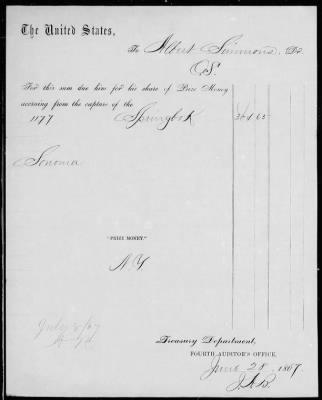 The United States,
To Albert Simmons, Dr.
O.S.
For this sum due him for his share of Prize Money
accruing from the capture of the
1177 Springbok
Sonoma
"PRIZE MONEY."
N.Y.
July 2/67
Treasury Department,
FOURTH AUDITOR'S OFFICE,
June 28, 1867.